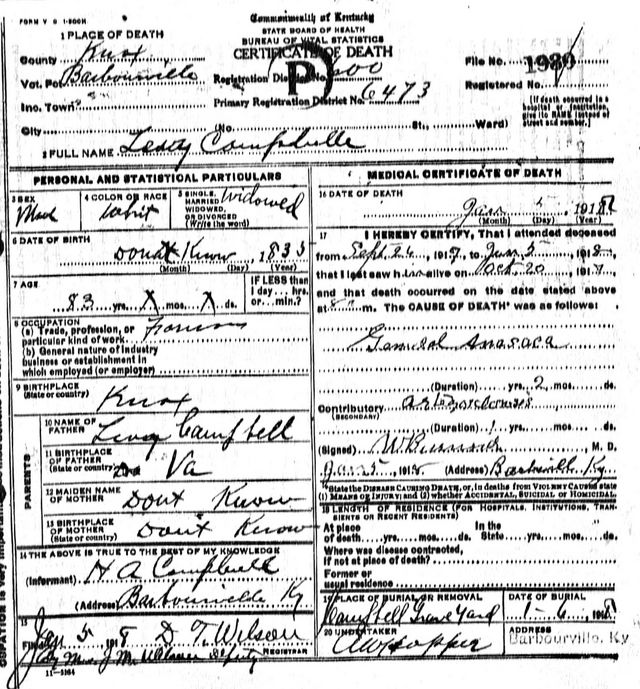 FORM V S 1-200M
Commonwealth of Kentucky
STATE BOARD OF HEALTH
BUREAU OF VITAL STATISTICS
CERTIFICATE OF DEATH
1 PLACE OF DEATH
County Knox
Vot. Pct. Barbourville
Inc. Town
City (No. St., Ward)
Registration District No. 600
Primary Registration District No. 6473
File No. 1980
Registered No.
[If death occurred in a hospital or institution, give its NAME instead of street and number.]
P
2 FULL NAME Levy Campbelle
PERSONAL AND STATISTICAL PARTICULARS
3 SEX
4 COLOR OR RACE whit
5 SINGLE, MARRIED, WIDOWED, OR DIVORCED (Write the word) Widowed
6 DATE OF BIRTH
Dont Know, 1835
(Month) (Day) (Year)
7 AGE
83 yrs. X mos. X ds.
IF LESS than 1 day ... hrs. or ... min.?
8 OCCUPATION
(a) Trade, profession, or particular kind of work
(b) General nature of industry business or establishment in which employed (or employer)
9 BIRTHPLACE
(State or country) Knox
PARENTS
10 NAME OF FATHER Levy Campbell
11 BIRTHPLACE OF FATHER
(State or country) Va
12 MAIDEN NAME OF MOTHER Dont Know
13 BIRTHPLACE OF MOTHER
(State or country) Don't Know
14 THE ABOVE IS TRUE TO THE BEST OF MY KNOWLEDGE
(Informant) H A Campbell
(Address) Barbourville Ky
15
Filed Jan 5 1918 D. T. Wilson
REGISTRAR
11-3164
MEDICAL CERTIFICATE OF DEATH
16 DATE OF DEATH
Jan 5, 1918
(Month) (Day) (Year)
17 I HEREBY CERTIFY, That I attended deceased
from Sept 24, 1917, to Jan 5, 1918,
that I last saw him alive on Oct. 20, 1917,
and that death occurred on the date stated above
at m. The CAUSE OF DEATH* was as follows:
General Anasaca
(Duration) yrs. 2 mos. ds.
Contributory
(SECONDARY)
(Duration) 1 yrs. mos. ds.
(Signed) M. D.
Jan 5 1918 (Address) Barbville Ky
*State the DISEASE CAUSING DEATH, or, in deaths from VIOLENT CAUSES state (1) MEANS OF INJURY; and (2) whether ACCIDENTAL, SUICIDAL or HOMICIDAL.
18 LENGTH OF RESIDENCE (FOR HOSPITALS, INSTITUTIONS, TRANSIENTS OR RECENT RESIDENTS)
At place of death yrs. mos. ds. In the State yrs. mos. ds.
Where was disease contracted, if not at place of death?
Former or usual residence
19 PLACE OF BURIAL OR REMOVAL
Campbell Grave Yard
DATE OF BURIAL
1-6, 1918
20 UNDERTAKER
ADDRESS
Barbourville, Ky.